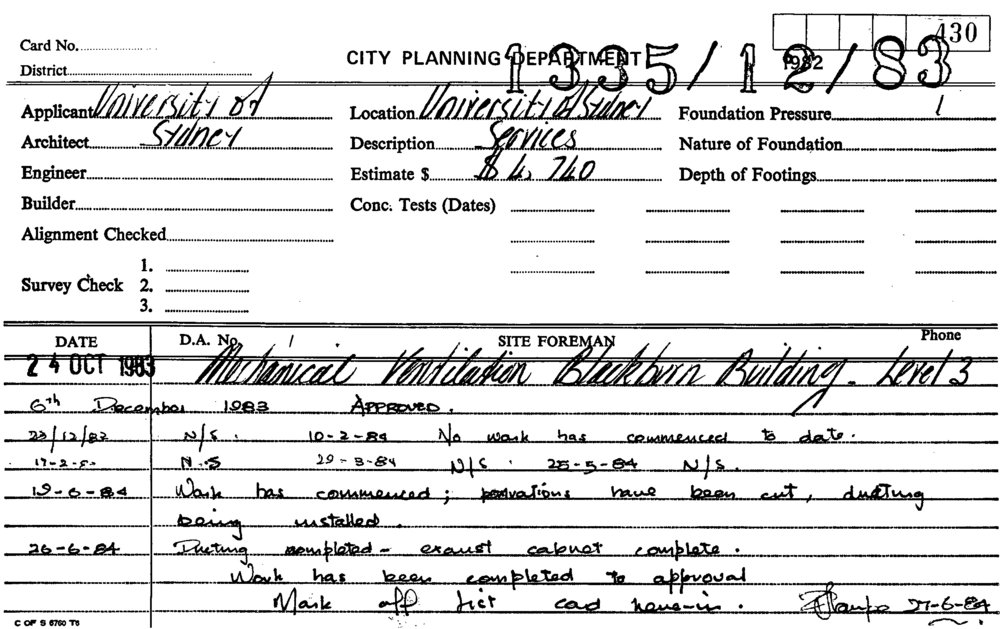 430
Card No.
CITY PLANNING DEPARTMENT 1335/12/83
1982
District
Applicant University of Location University of Sydney Foundation Pressure
Architect Sydney Description Services Nature of Foundation
Engineer Estimate $ $ 4,740 Depth of Footings
Builder Conc. Tests (Dates)
Alignment Checked
1.
Survey Check 2.
3.
DATE D.A. No. SITE FOREMAN Phone
24 OCT 1983 Mechanical Ventilation Blackburn Building - Level 3
6th December 1983 APPROVED.
N/S. 10-2-84 No work has commenced to date.
N.S 29-3-84 N/S. 25-5-84 N/S.
19-6-84 Work has commenced; have been cut, ducting
being installed.
26-6-84 Ducting completed - exaust cabnet complete.
Work has been completed to approval
Mark off card 27-6-84
C OF S 6760 T6